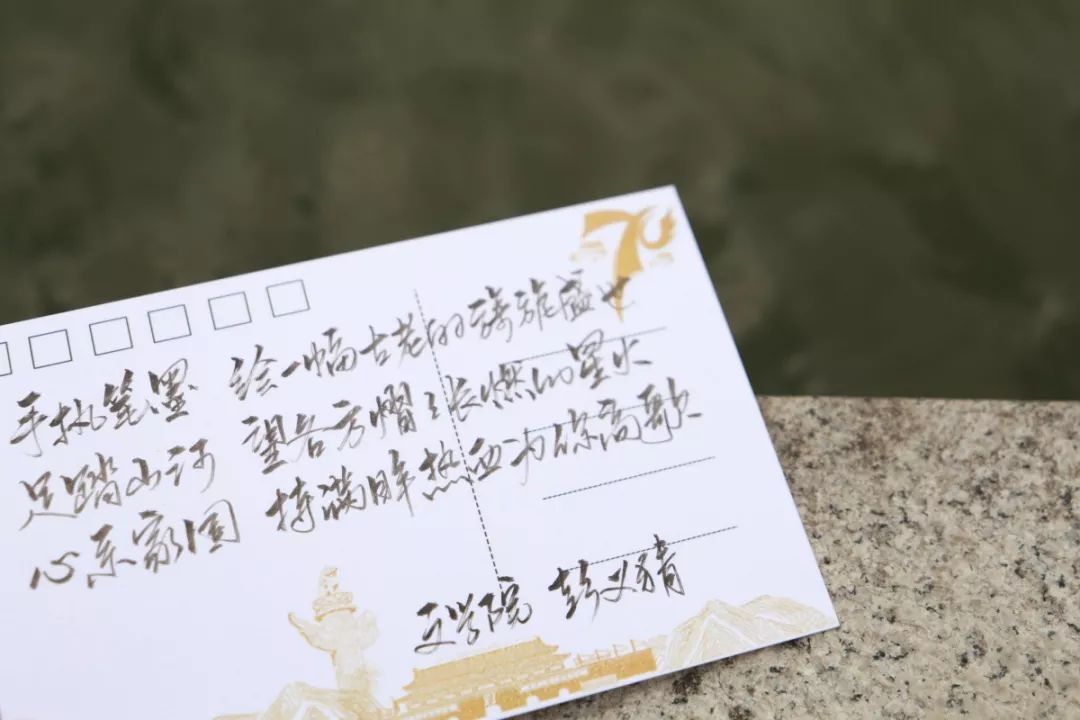 70
手执笔墨 绘一幅古老的旖旎盛世
足踏山河 望各方熠熠燃的星火
心系家国 持满眸热血为你高歌
文学院 彭义倩